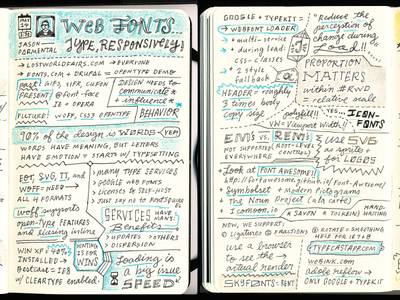 WEB FONTS...
TYPE, RESPONSIVELY
JASON
PAMENTAL
→ LOSTWORLDFAIRS.COM →EVERYONE
→ FONTS.COM + DRUPAL = OPENTYPE DEMO
PAST: SIFR, CUFON
PRESENT @font-face
IE + OPERA
DESIGN NEEDS TO
communicate +
influence
BEHAVIOR
FUTURE: WOFF, CSS3 OPENTYPE
90% of the design is WORDS - YEP!
WORDS HAVE MEANING, BUT LETTERS
HAVE EMOTION + STARTS W/ TYPESETTING
EOT, SVG, TT, and
WOFF - NEED
ALL 4 FORMATS
woff supports
open-Type FEATURES
and slicing inline
MANY TYPE SERVICES
› GOOGLE WEB FONTS
› Licenses to Self-Host
› Just say no to FontSpring
SERVICES HAVE MANY
Benefits
› UPDATES › OTHERS
DISPERSION
WIN XP = 40%
INSTALLED →
W/ CLEARTYPE enabled
HINTING
IS FOR
WINS
Loading is
a big issue
SPEED
GOOGLE + TYPEKIT =
WEBFONT LOADER
+ multi-service
+ during load
css-classes
+ 2 style
fallback
"Reduce the
perception of
change during
Load!!
HEADER = roughly
3 times body
copy size
PROPORTION
MATTERS
within #RWD
= relative scale
polyfill!!
VW = Viewport Width!!
YES... ICON-
FONTS
EMS VS. REMS
NOT SUPPORTED
EVERYWHERE
(ROOT-LEVEL
CONTROL)
USE SVG
as fonts
for LOGOS
+ Look at FONT AWESOME!!
Symbolset + Modern Pictograms
The Noun Project (a la café)
icomoon.io
NOW, WE SUPPORT
LIGATURES + FRACTIONS
use a browser
to see the
actual render
TYPECASTAPP.COM
WEBINK.COM
adobe reflow →
SKYFONTS = BEAT!
ONLY GOOGLE + TYPEKIT